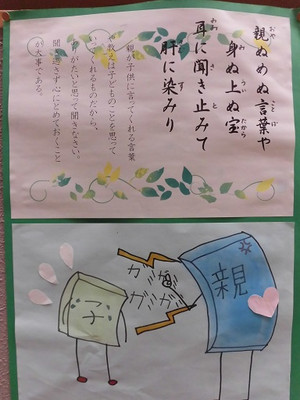 親ぬめぬ言葉や
身ぬ上ぬ宝
耳に聞き止みて
肝に染みり
親が子供に言ってくれる言葉
教えは子どものことを思って
いってくれるものだから、
ありがたいと思って聞きなさい。
聞き逃さず心にとめておくこと
が大事である。
親
子
ガミガミ
ガガ